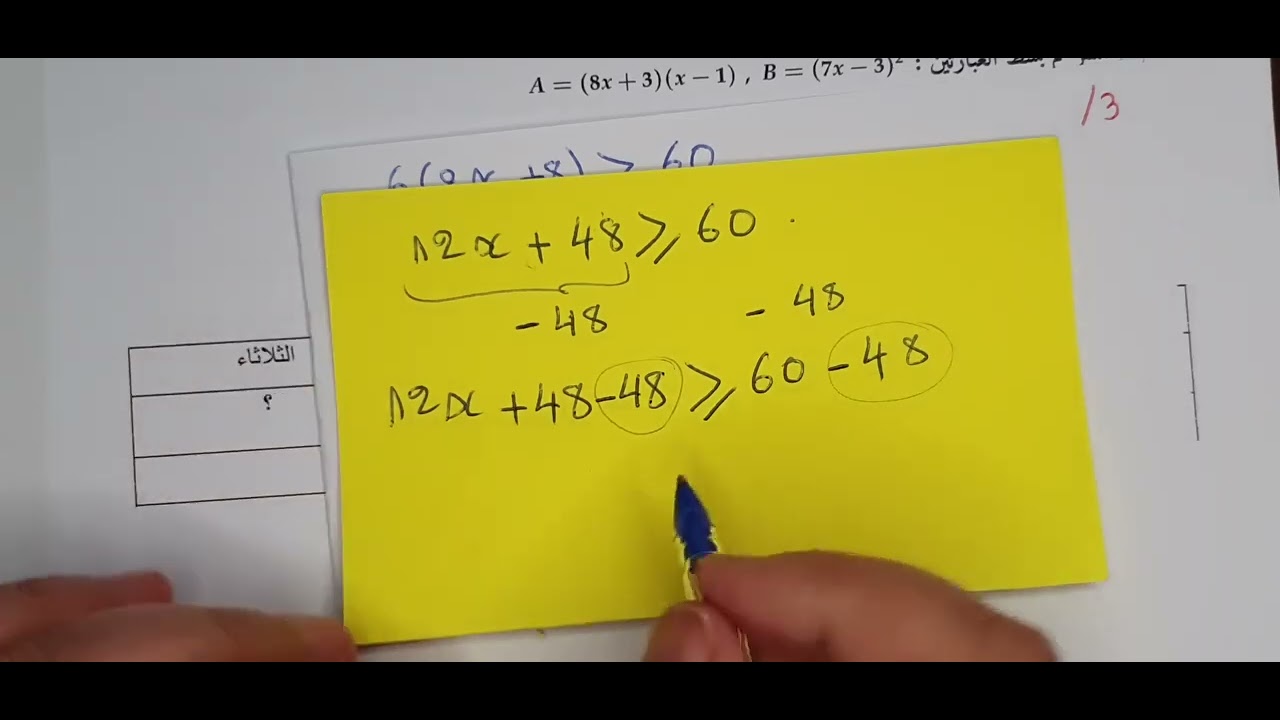 بسط العبارتين : A = (8x + 3)(x − 1) , B = (7x − 3)²
/3
6(2x +8) ≥ 60
12x + 48 ⩾ 60
- 48 - 48
12x + 48 - 48 ⩾ 60 - 48
الثلاثاء
؟